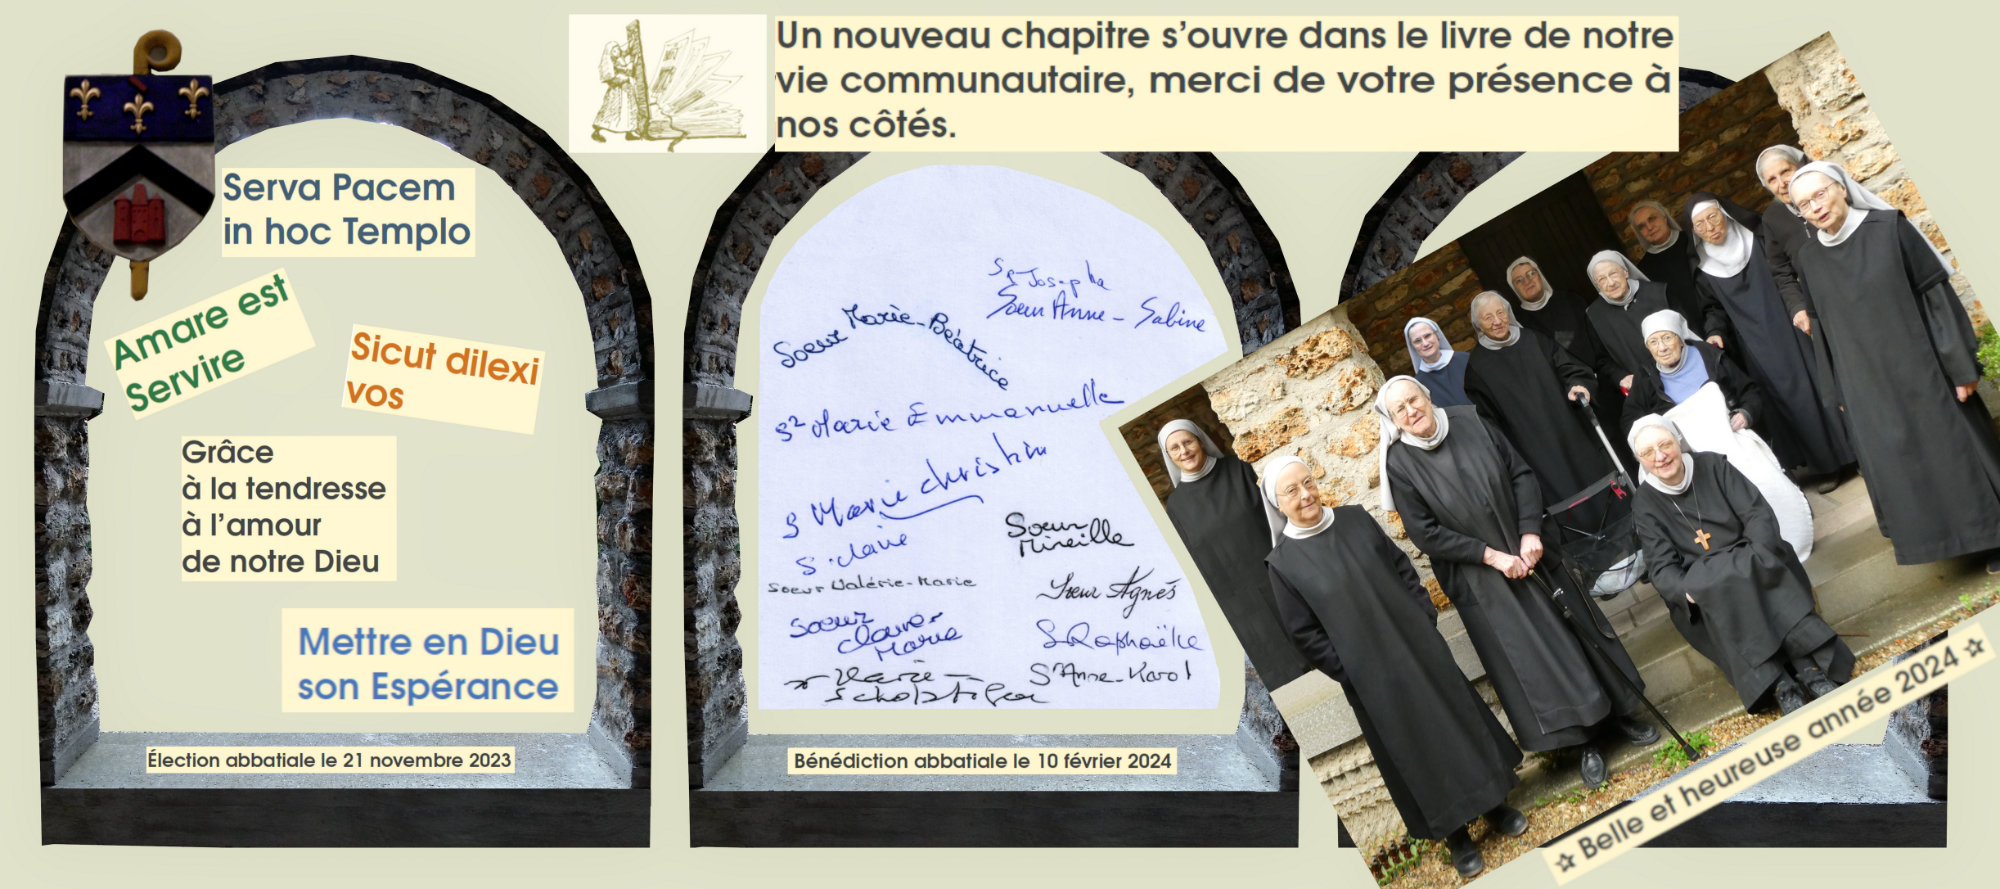 Un nouveau chapitre s’ouvre dans le livre de notre
vie communautaire, merci de votre présence à
nos côtés.
Serva Pacem
in hoc Templo
Amare est
Servire
Sicut dilexi
vos
Grâce
à la tendresse
à l’amour
de notre Dieu
Mettre en Dieu
son Espérance
Élection abbatiale le 21 novembre 2023
Sr Josepha
Soeur Anne-Sabine
Soeur Marie-Béatrice
Sr Marie Emmanuelle
S Marie Christine
S. Claire
Soeur Mireille
Soeur Valérie-Marie
Soeur Agnès
Soeur
Claire-
Marie
S Raphaëlle
Sr Anne-Karol
Marie-
Scholastique
Bénédiction abbatiale le 10 février 2024
☆ Belle et heureuse année 2024 ☆